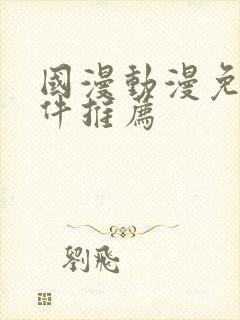 國漫動漫免
件推薦
劉飛